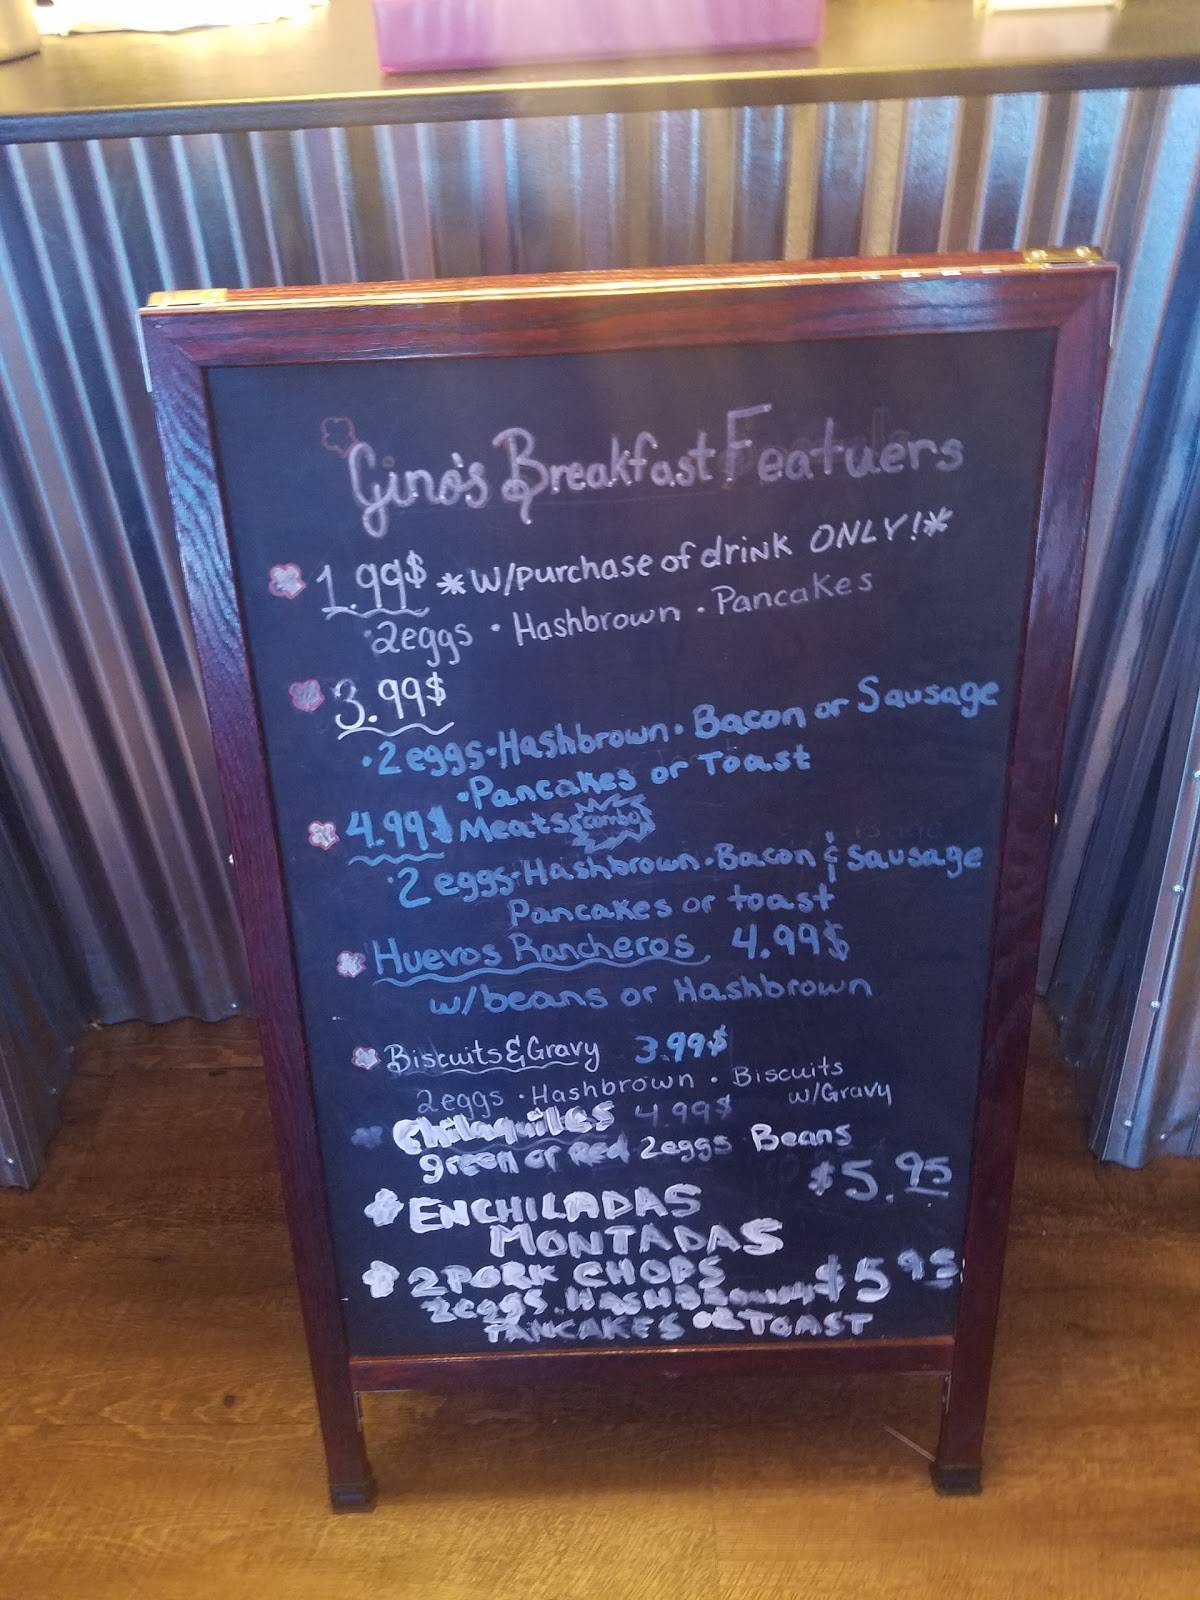 Gino's Breakfast Featuers
1.99$ *w/purchase of drink ONLY!*
·2eggs · Hashbrown · Pancakes
3.99$
·2eggs·Hashbrown·Bacon or Sausage
·Pancakes or Toast
4.99$ Meats combo
·2eggs·Hashbrown·Bacon & sausage
Pancakes or toast
Huevos Rancheros 4.99$
w/beans or Hashbrown
Biscuits&Gravy 3.99$
2eggs ·Hashbrown · Biscuits
w/Gravy
Chilaquiles 4.99$
green or Red 2eggs Beans
$5.95
ENCHILADAS
MONTADAS
2 PORK CHOPS $5 95
2eggs. HASHBrowns
PANCAKES OR TOAST